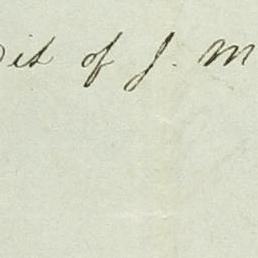 dit of J. M